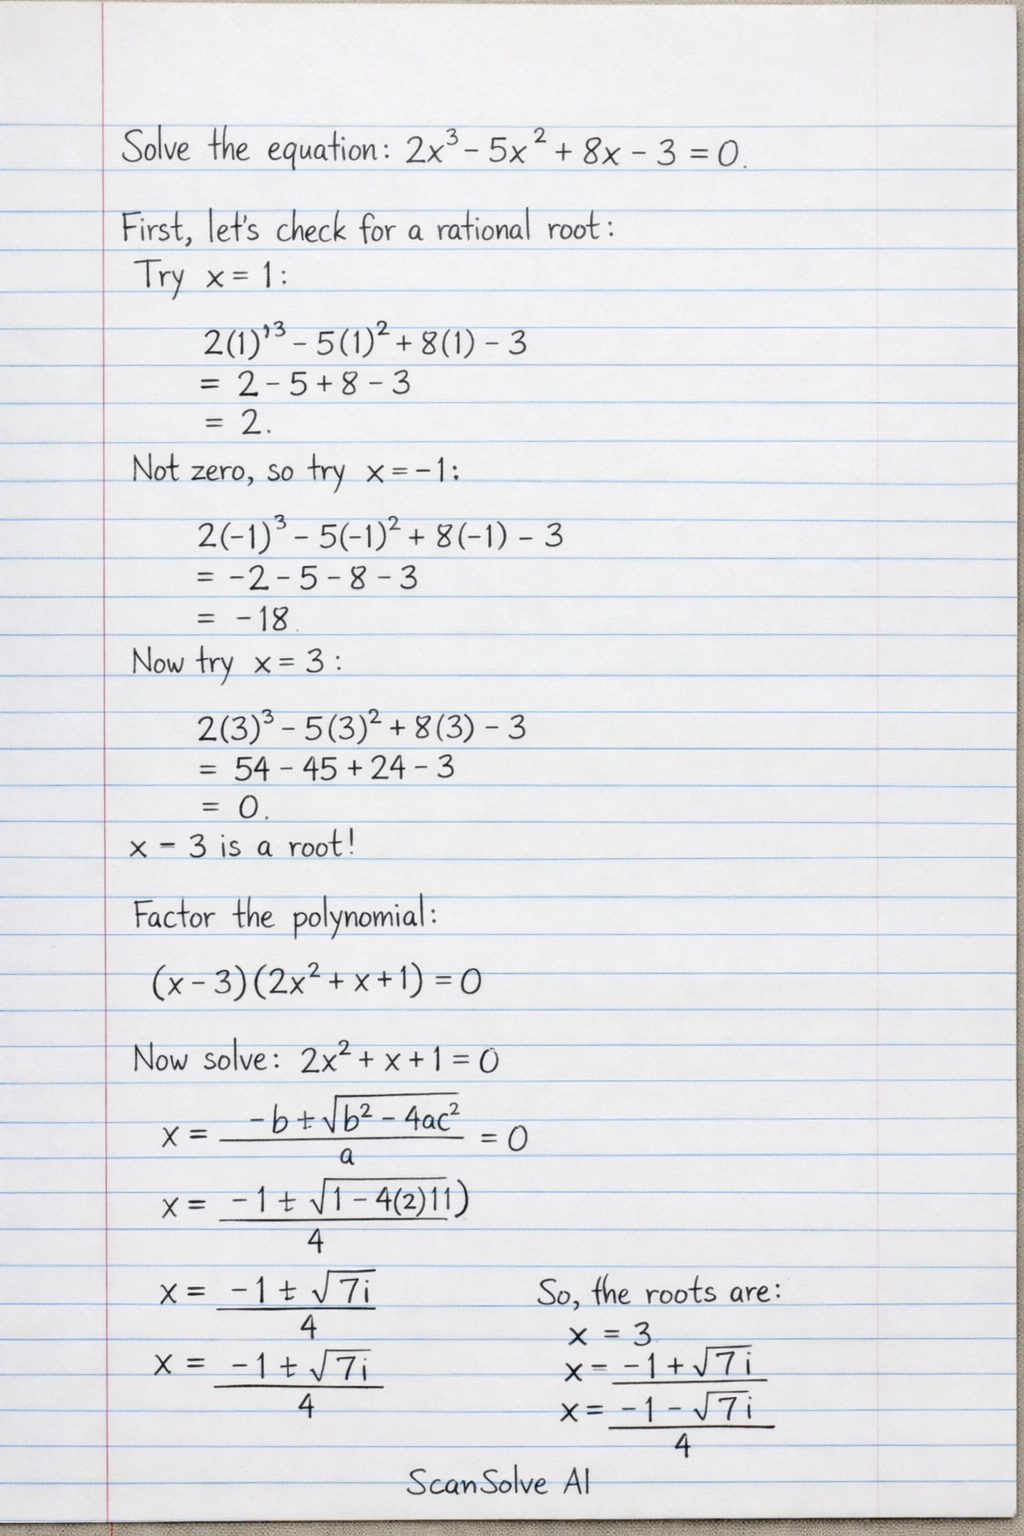 Solve the equation: 2x³ - 5x² + 8x - 3 = 0.
First, let's check for a rational root:
Try x = 1:
2(1)'³ - 5(1)² + 8(1) - 3
= 2 - 5 + 8 - 3
= 2.
Not zero, so try x = -1:
2(-1)³ - 5(-1)² + 8(-1) - 3
= -2 - 5 - 8 - 3
= -18.
Now try x = 3:
2(3)³ - 5(3)² + 8(3) - 3
= 54 - 45 + 24 - 3
= 0.
x - 3 is a root!
Factor the polynomial:
(x - 3)(2x² + x + 1) = 0
Now solve: 2x² + x + 1 = 0
x = -b ± √b² - 4ac² = 0
a
x = -1 ± √1 - 4(2)11)
4
x = -1 ± √7i
4
x = -1 ± √7i
4
So, the roots are:
x = 3
x = -1 + √7i
x = -1 - √7i
4
ScanSolve AI